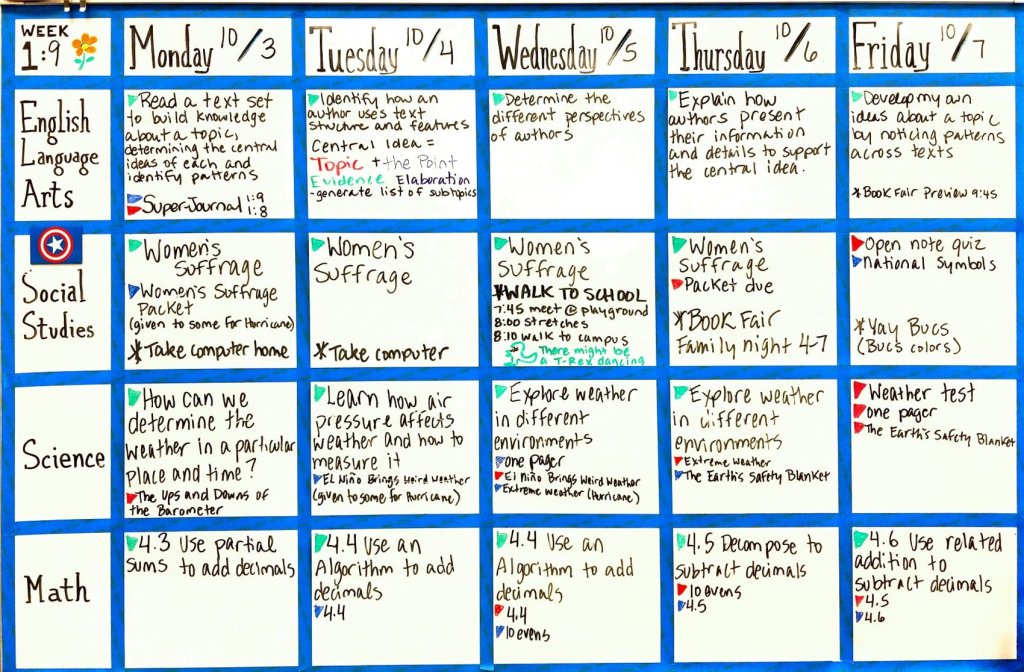 WEEK
1:9
Monday 10/3
Tuesday 10/4
Wednesday 10/5
Thursday 10/6
Friday 10/7
English
Language
Arts
Read a text set
to build knowledge
about a topic,
determining the central
ideas of each and
identify patterns
Super-Journal 1:9
1:8
Identify how an
author uses text
structure and features
Central Idea =
Topic + the Point
Evidence Elaboration
-generate list of subtopics
Determine the
different perspectives
of authors
Explain how
authors present
their information
and details to support
the central idea.
Develop my own
ideas about a topic
by noticing patterns
across texts
*Book Fair Preview 9:45
Social
Studies
Women's
Suffrage
Women's Suffrage
Packet
(given to some for Hurricane)
*Take computer home
Women's
Suffrage
*Take computer
Women's
Suffrage
*WALK TO SCHOOL
7:45 meet @ playground
8:00 stretches
8:10 walk to campus
There might be
a T-Rex dancing
Women's
Suffrage
Packet due
*Book Fair
Family night 4-7
Open note quiz
National Symbols
*Yay Bucs
(Bucs colors)
Science
How can we
determine the
weather in a particular
place and time?
The Ups and Downs of
the Barometer
Learn how air
pressure affects
weather and how to
measure it
El Niño Brings Weird Weather
(given to some for Hurricane)
Explore weather
in different
environments
one pager
El Niño Brings Weird Weather
Extreme weather (Hurricane)
Explore weather
in different
environments
Extreme weather
The Earth's Safety Blanket
Weather test
one pager
The Earth's Safety Blanket
Math
4.3 Use partial
sums to add decimals
4.4 Use an
Algorithm to add
decimals
4.4
4.4 Use an
Algorithm to add
decimals
4.4
10 evens
4.5 Decompose to
subtract decimals
10 evens
4.5
4.6 Use related
addition to
subtract decimals
4.5
4.6